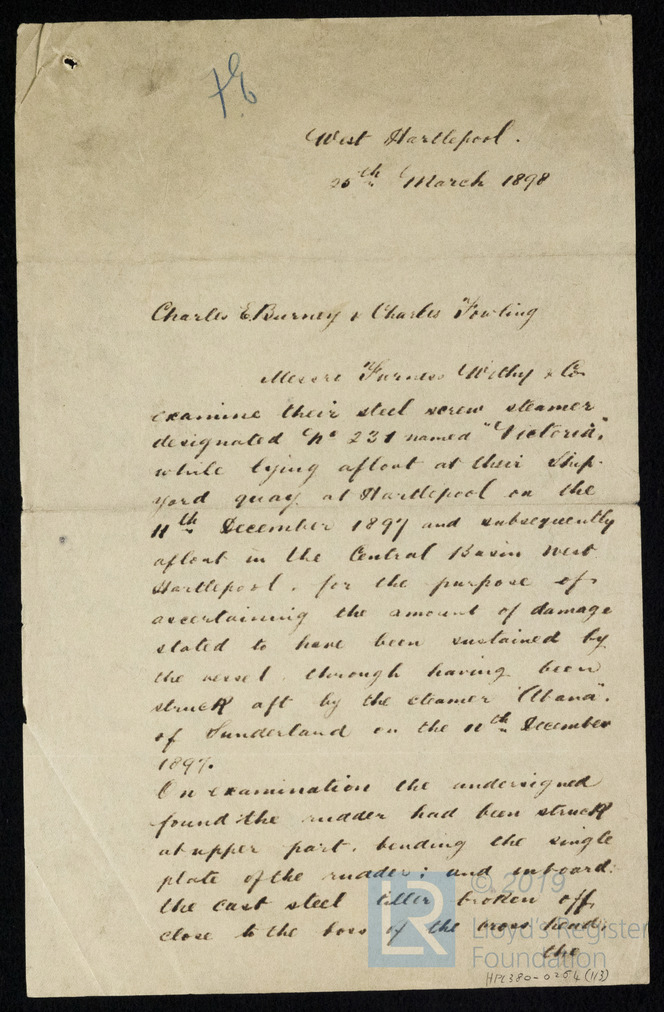 West Hartlepool.
25th March 1898
Charles E. Burney & Charles Fowling
Messrs Furness Withy & Co
examine their steel screw steamer
designated No 231 named "Victoria",
while lying afloat at their Ship-
yard quay at Hartlepool on the
11th December 1897 and subsequently
afloat in the Central Basin West
Hartlepool. for the purpose of
ascertaining the amount of damage
stated to have been sustained by
the vessel, through having been
struck aft by the steamer "Abana".
of Sunderland on the 11th December
1897.
On examination the undersigned
found the rudder had been struck
at upper part, bending the single
plate of the rudder; and inboard:
the cast steel tiller broken off
close to the boss of the cross head;
the
© 2019
LR Lloyd's Register
Foundation
HPL380-0254(1/3)